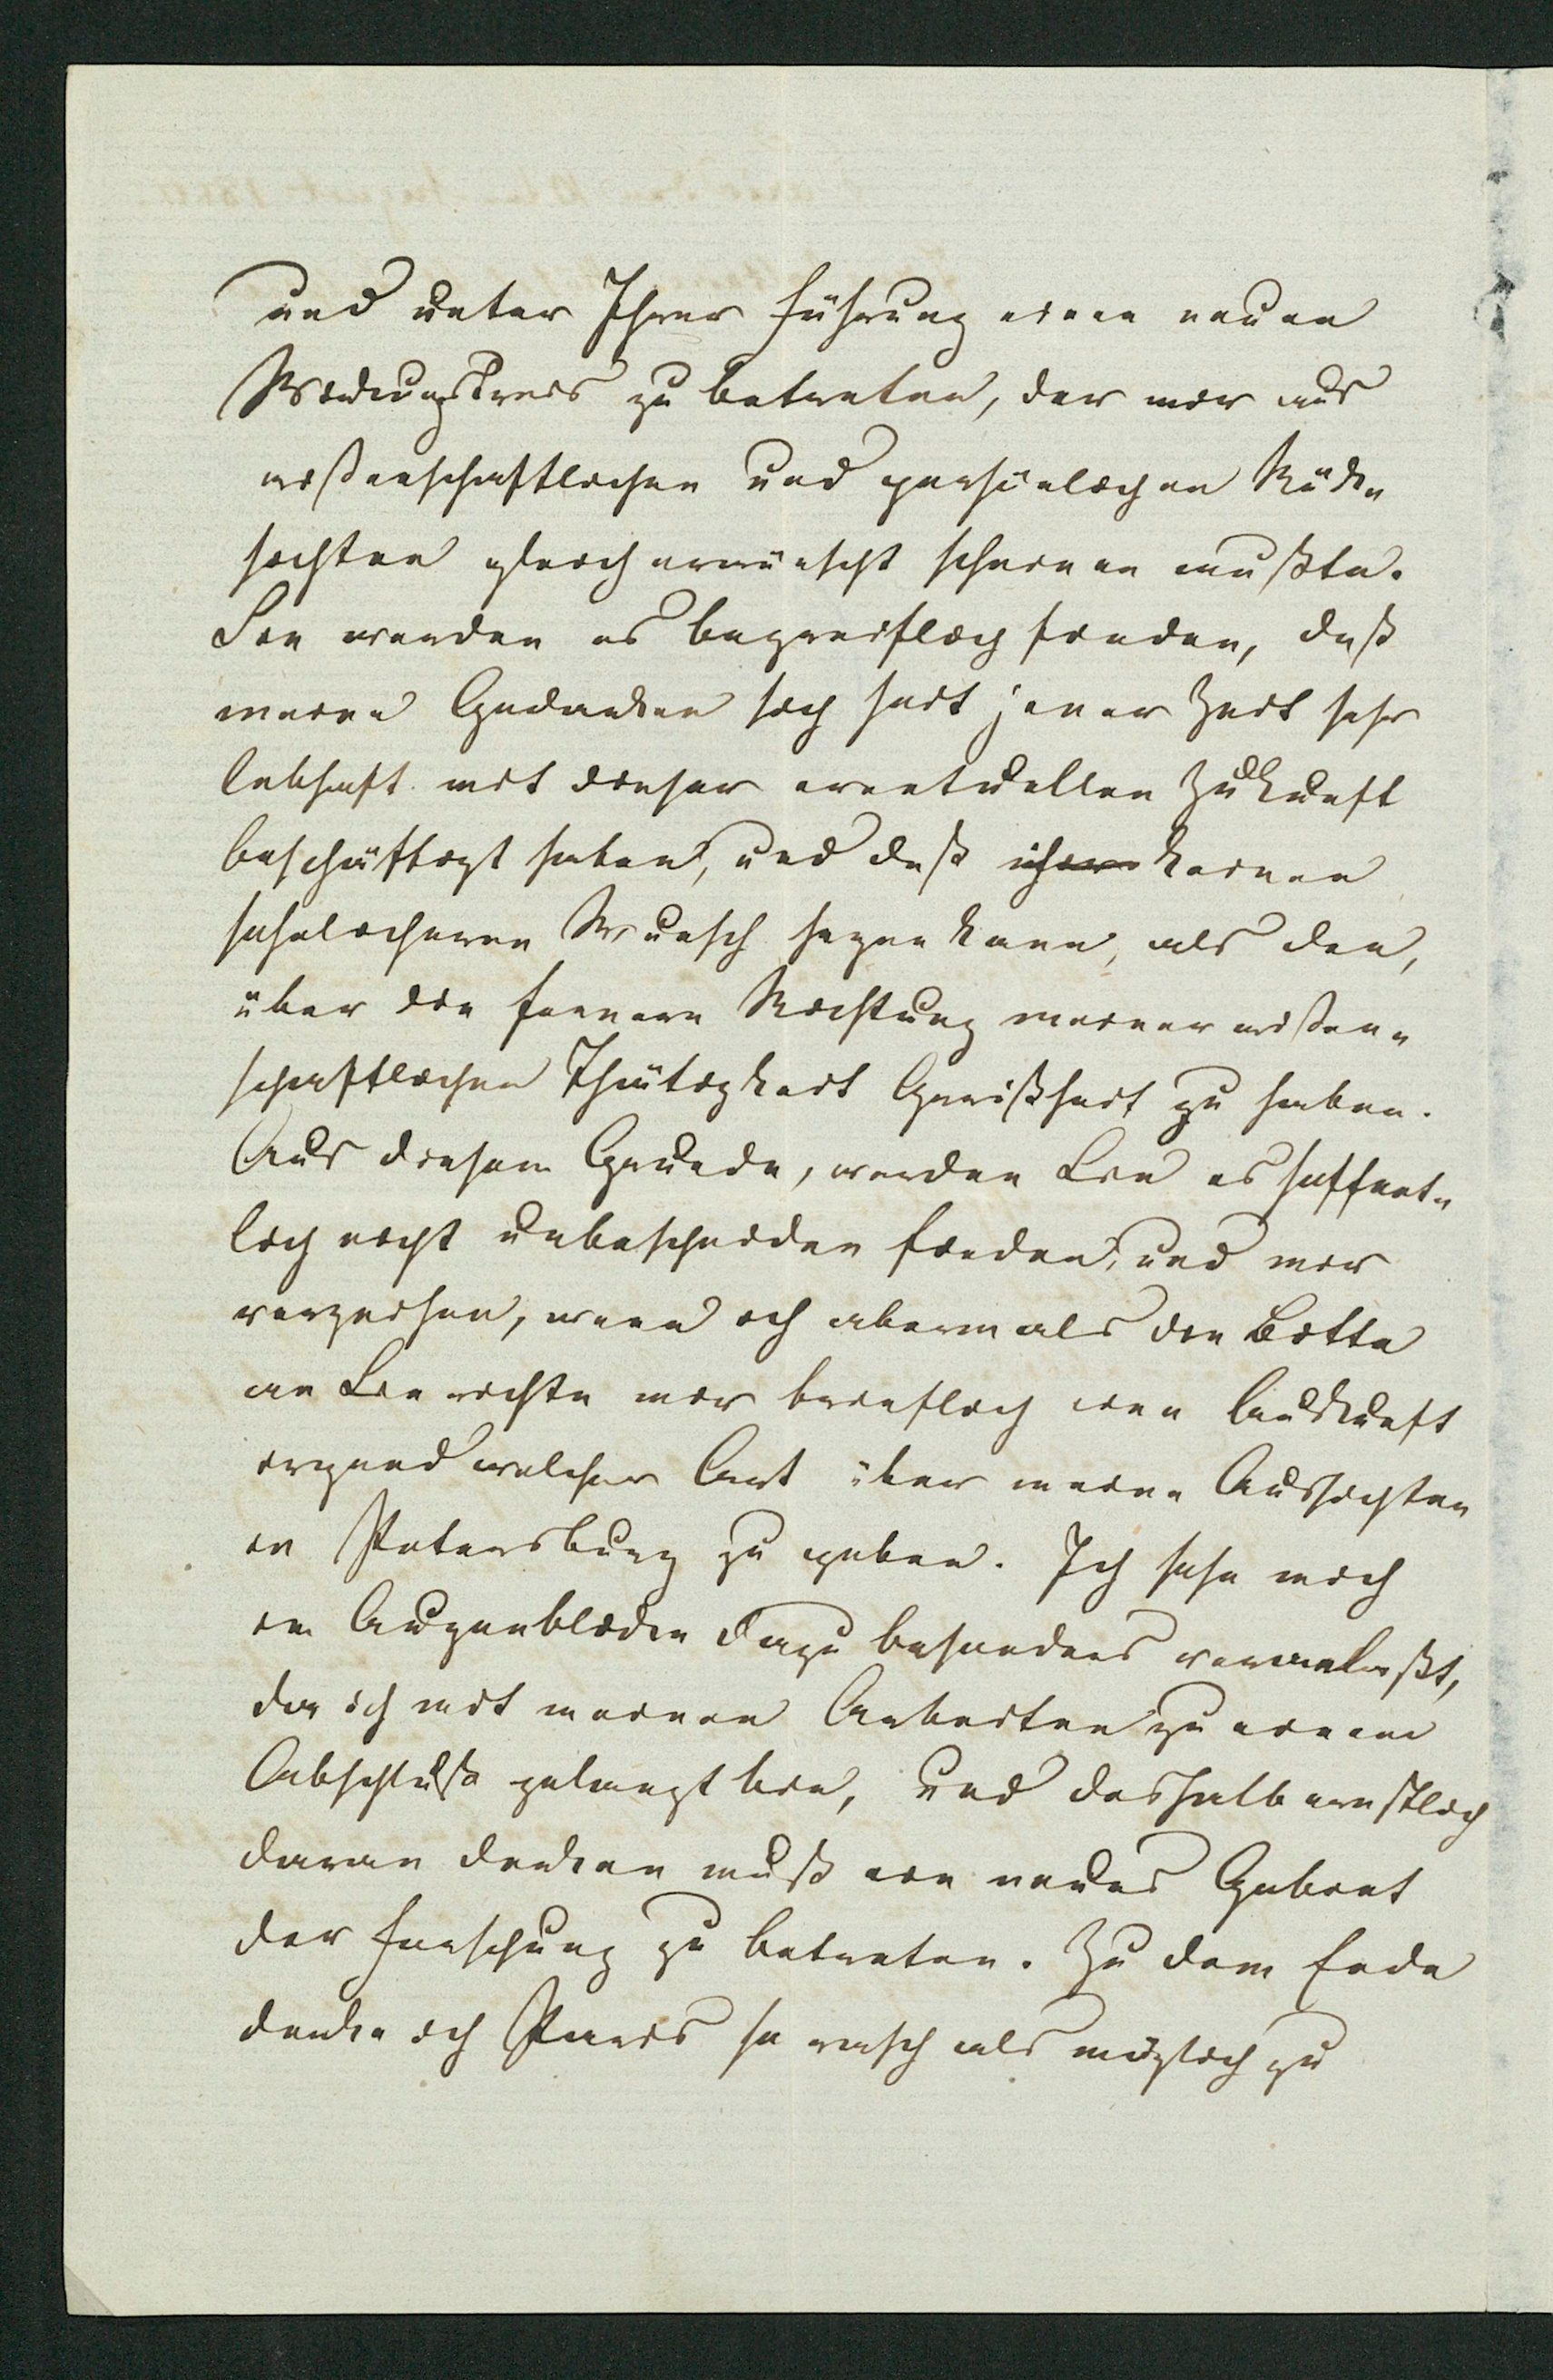 und unter Ihrer Führung einen neuen
Wirkungskreis zu betreten, der mir aus
wißenschaftlichen und persönlichen Rück-
sichten gleich erwünscht scheinen mußte.
Sie werden es begreiflich finden, daß
meine Gedanken sich seit jener Zeit sehr
lebhaft mit dieser eventuellen Zukunft
beschäftigt haben, und daß ich keinen
sehnlicheren Wunsch hegen kann, als den,
über die fernere Richtung meiner wißen-
schaftlichen Thätigkeit Gewißheit zu haben.
Aus diesem Grunde, werden Sie es hoffent-
lich nicht unbescheiden finden, und mir
verzeihen, wenn ich abermals die Bitte
an Sie richte mir brieflich eine Auskunft
irgend welcher Art über meine Aussichten
in Petersburg zu geben. Ich sehe mich
im Augenblicke dazu besonders veranlaßt,
da ich mit meinen Arbeiten zu einem
Abschluß gelangt bin, und deshalb ernstlich
daran denken muß ein neues Gebiet
der Forschung zu betreten. Zu dem Ende
denke ich Paris so rasch als möglich zu